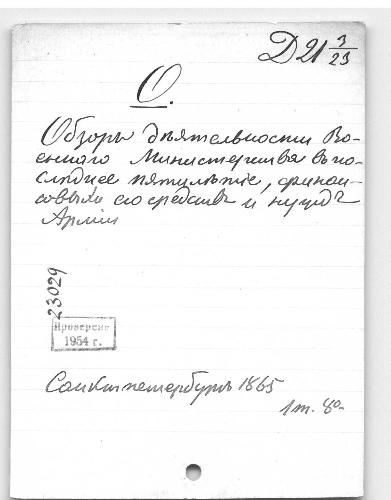 Д 21 3/23
О.
Обзоръ дѣятельности Во-
еннаго Министерства въ по-
слѣднее пятилѣтіе, финан-
совыхъ его средствъ и нуждъ
Арміи
23029
Проверено
1954 г.
Санктпетербургъ 1865
1 т. 8о-